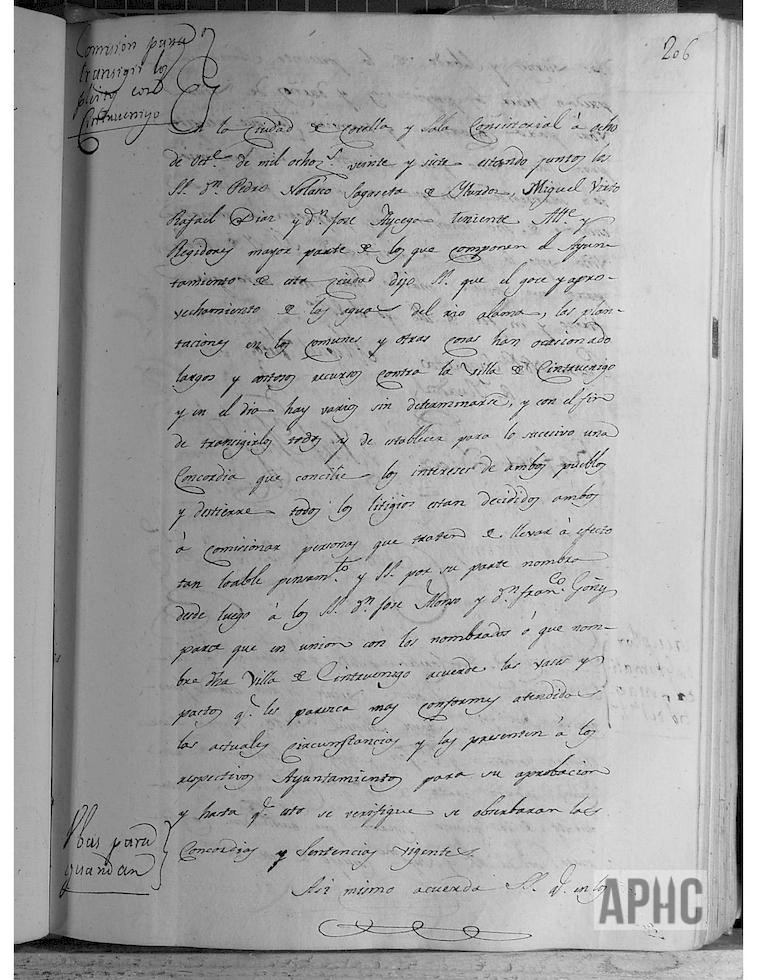 206
Comision para
transigir los
pleitos con
Cintruenigo
En la Ciudad de Corella y Sala Consistorial à ocho
de Oct.e de mil ocho.s veinte y siete estando juntos los
SS. Dn. Pedro Nolasco Sagaseta de Ylurdoz, Miguel Virto
Rafael Diaz y Dn. Jose Aycega teniente Alk.e y
Regidores mayor parte de los que componen el Ayun-
tamiento de esta Ciudad dijo SS. que el goce y apro-
vechamiento de las aguas del rio alama, las plan-
taciones en los comunes y otras cosas han ocasionado
largos y costosos recursos contra la Villa de Cintruenigo
y en el dia hay varios sin determinarse, y con el fin
de transigirlos todos y de establecer para lo sucesivo una
Concordia que concilie los intereses de ambos pueblos
y destierre todos los litigios estan decididos ambos
à comisionar personas que traten de llevar à efecto
tan loable pensam.to y SS. por su parte nombra
desde luego à los SS. Dn. Jose Alonso y Dn. Fran.co Goñy
para que en union con los nombrados ó que nom-
bre dha Villa de Cintruenigo acuerde las vases y
pactos q.e les parezca mas conformes atendidas
las actuales circunstancias y las presenten à los
respectivos Ayuntamientos para su aprobacion
y hasta q.e esto se verifique se obserbaran las
Concordias y Sentencias vigentes.
para
guardan
Asi mismo acuerda SS. q.e en los
APHC